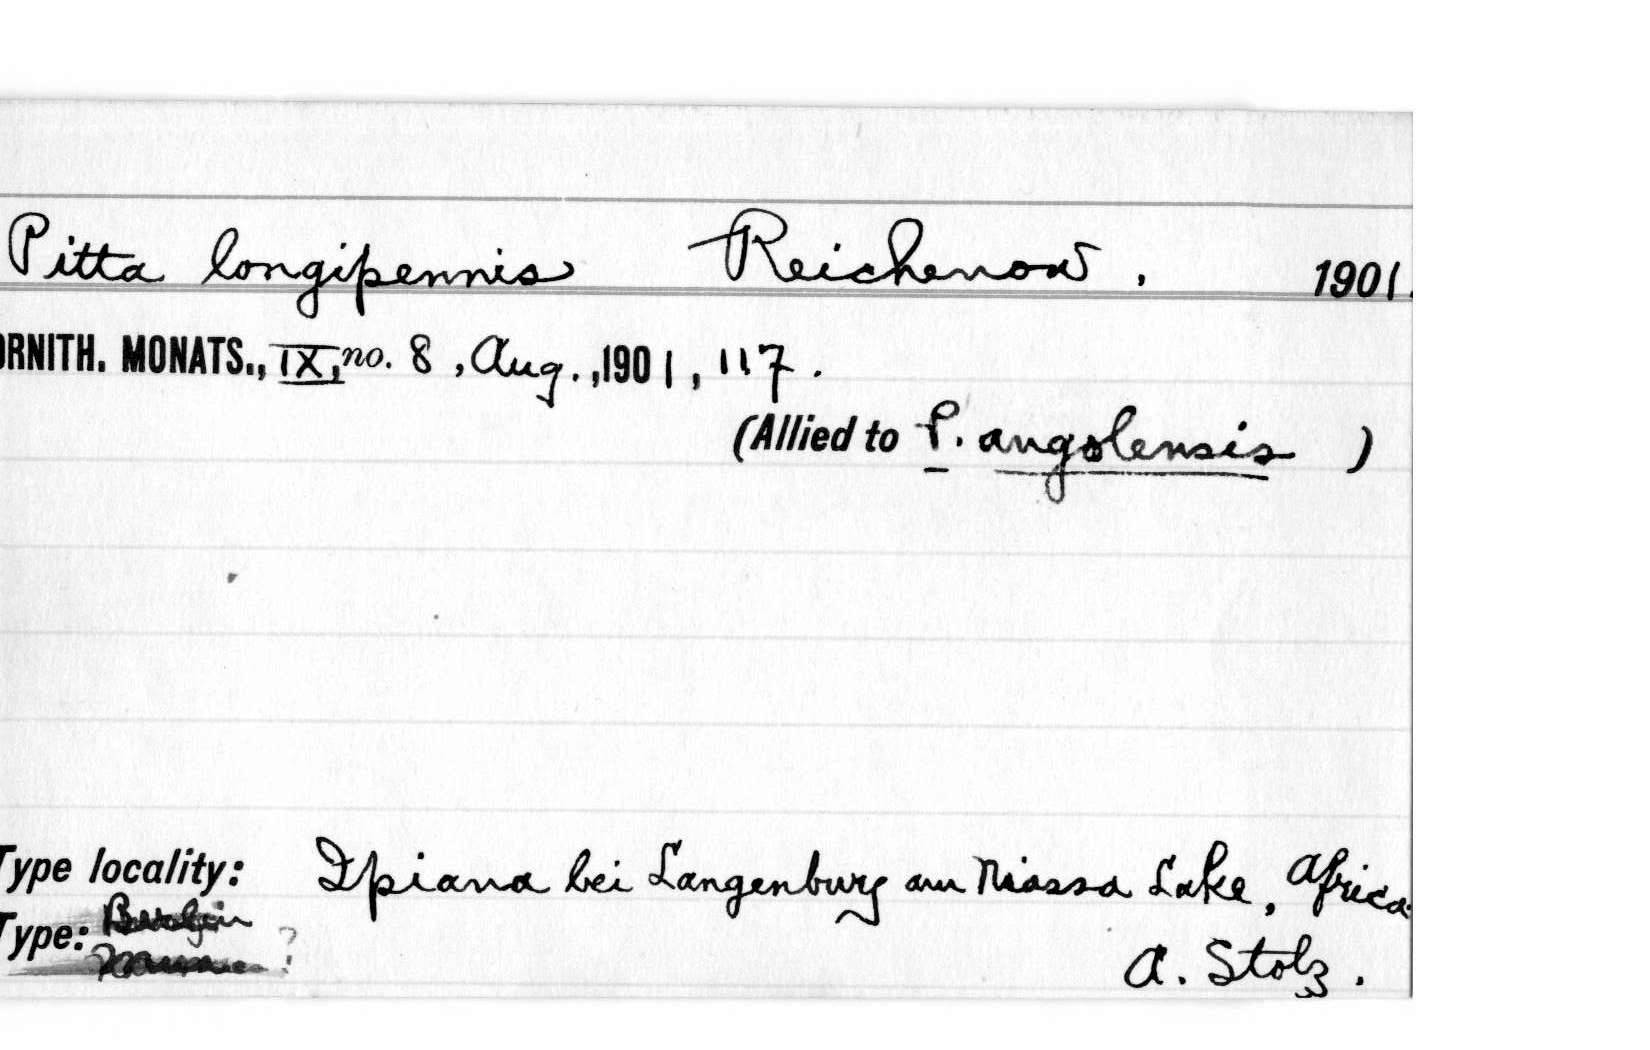 Pitta longipennis Reichenow, 1901.
ORNITH. MONATS., IX, no. 8, Aug., 1901, 117.
(Allied to P. angolensis )
Type locality: Ipiana bei Langenburg am Niassa Lake, Africa.
Type: Berlin
?
A. Stolz.